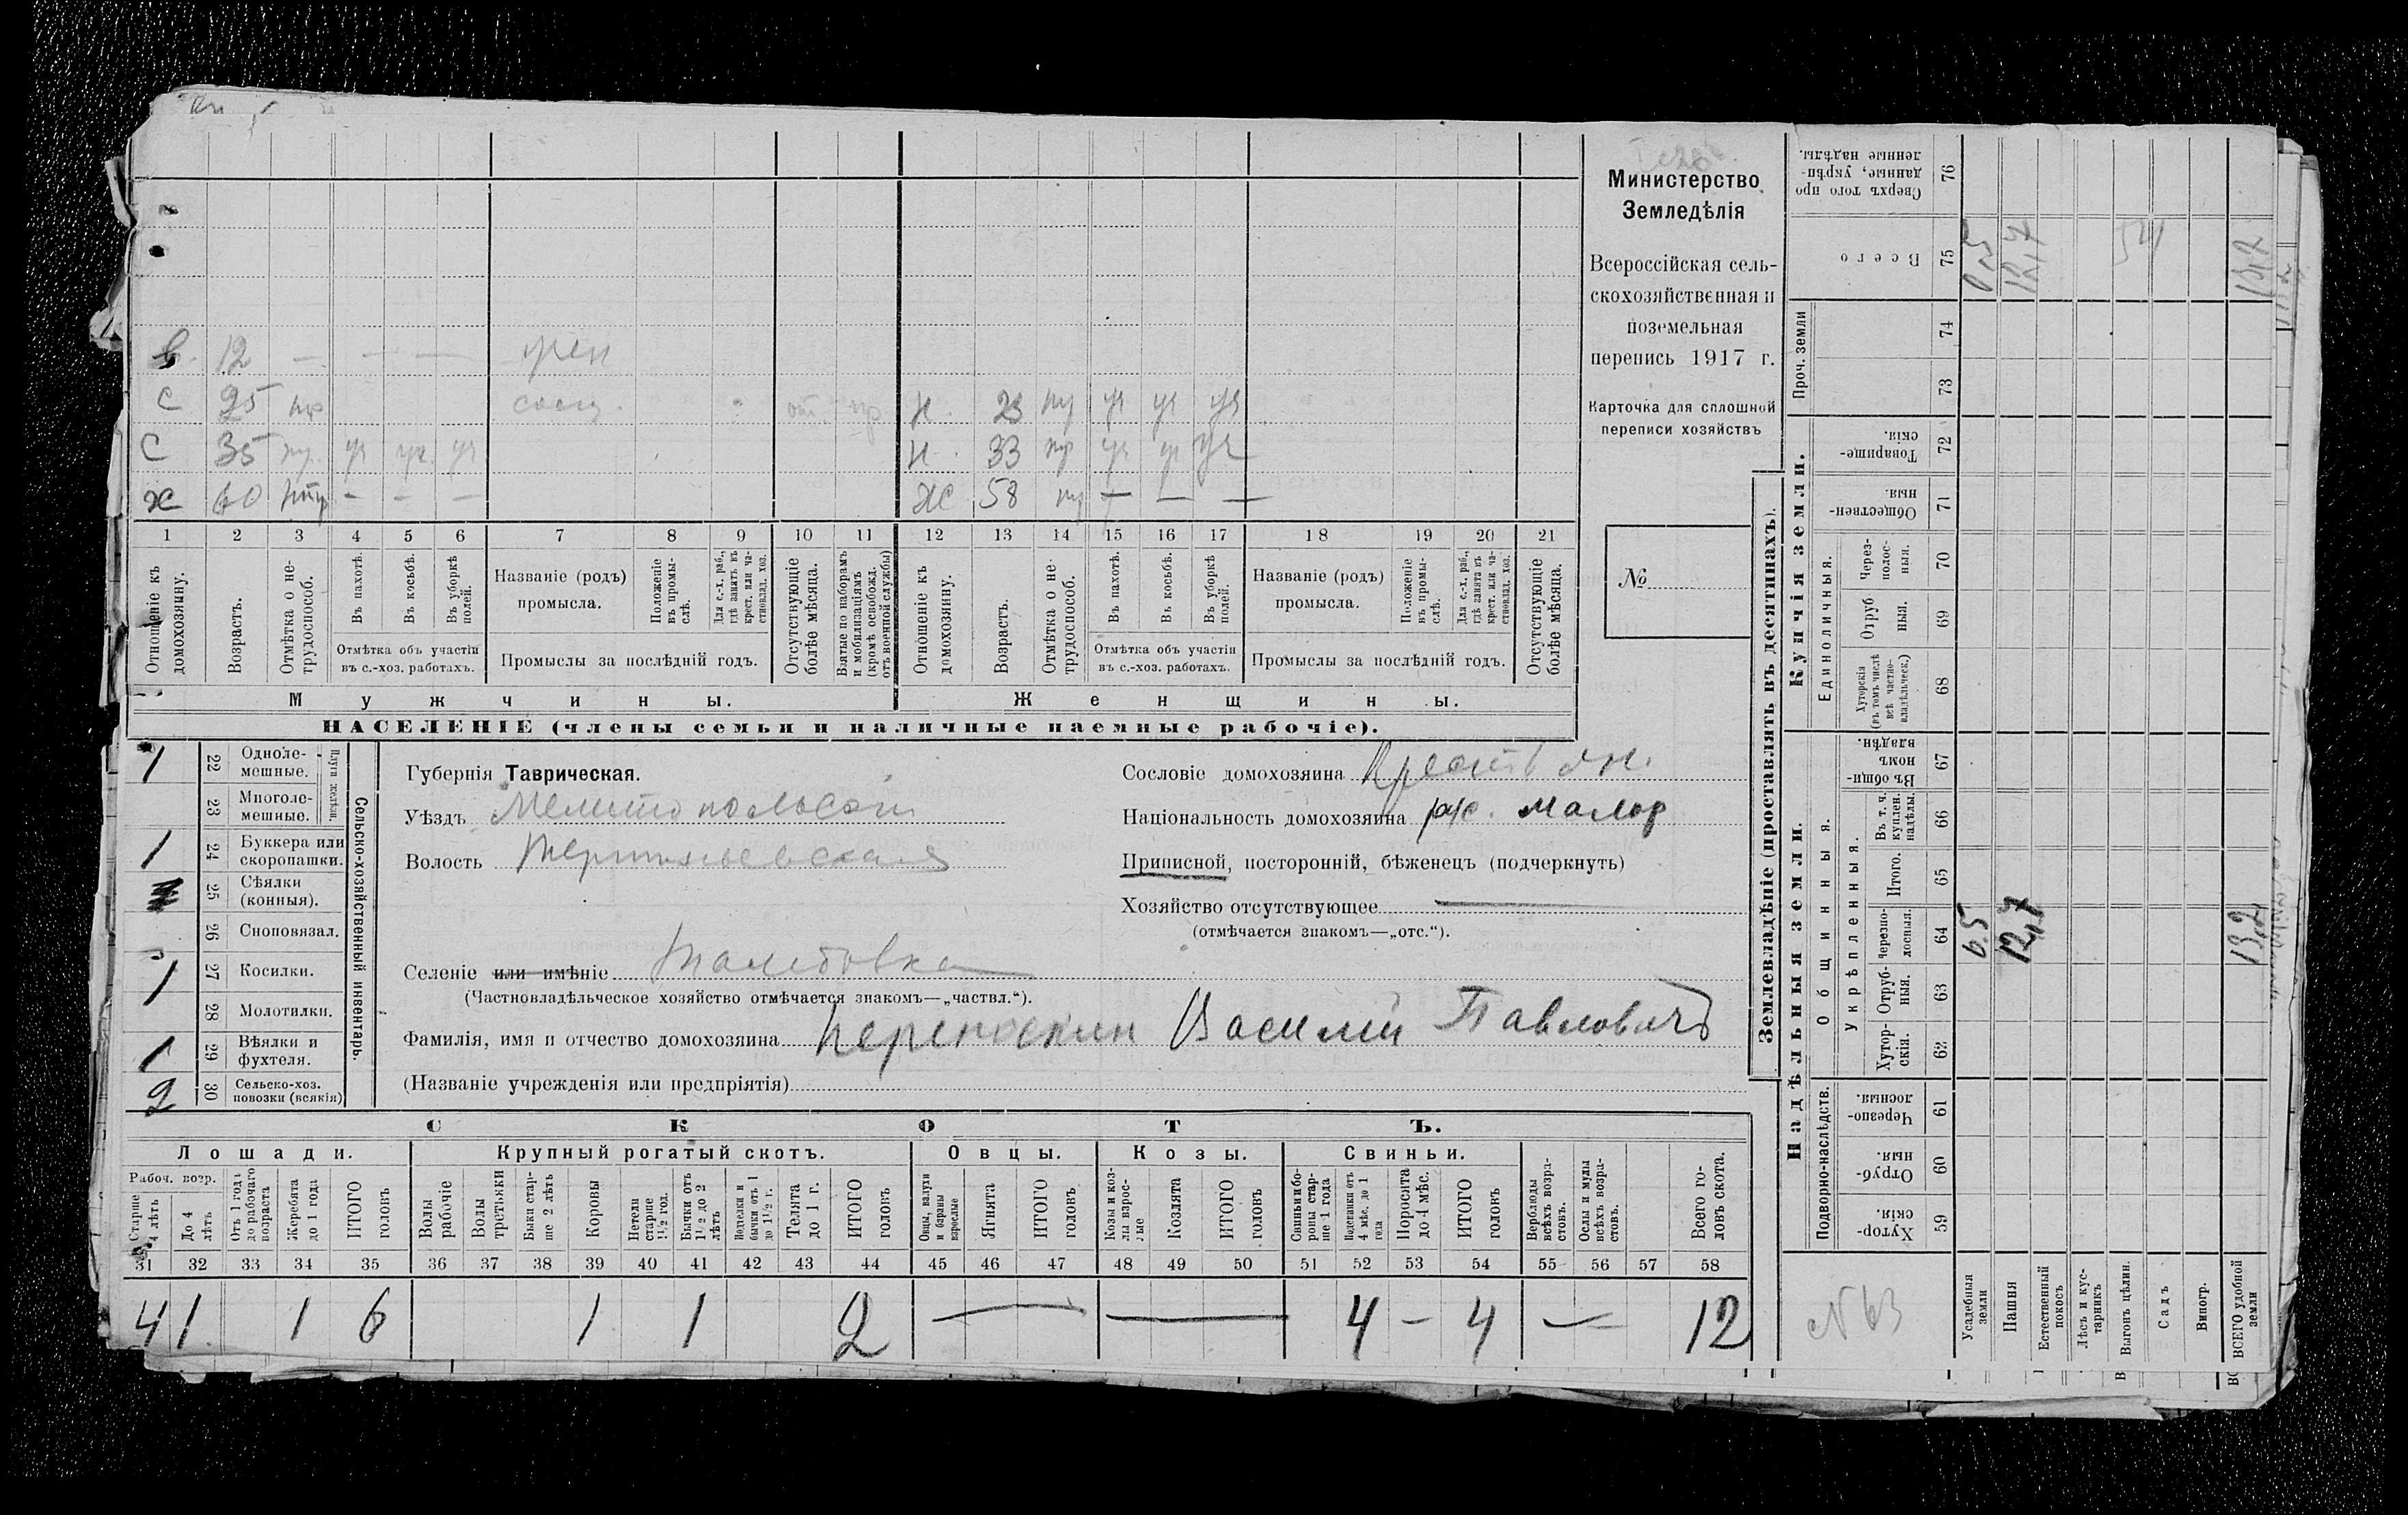 в. 12 — — —
С 25 нр отп. нр Н. 23 нр уч уч уч
С 35 нр уч уч. уч Н. 33 нр уч уч уч
Х 60 — — — Ж 58 нр — — —
1 2 3 4 5 6 7 8 9 10 11 12 13 14 15 16 17 18 19 20 21
Отношеніе къ домохозяину.
Возрастъ.
Отмѣтка о нетрудоспособ.
Въ пахотѣ.
Въ косьбѣ.
Въ уборкѣ полей.
Отмѣтка объ участіи
въ с.-хоз. работахъ.
Названіе (родъ)
промысла.
Положеніе въ промыслѣ.
Для с.-х. раб., гдѣ занятъ въ крест. или частновлад. хоз.
Промыслы за послѣдній годъ.
Отсутствующіе болѣе мѣсяца.
Взятые по наборамъ и мобилизаціямъ (кромѣ освобожд. отъ военной службы)
Отношеніе къ домохозяину.
Возрастъ.
Отмѣтка о нетрудоспособ.
Въ пахотѣ.
Въ косьбѣ.
Въ уборкѣ полей.
Отмѣтка объ участіи
въ с.-хоз. работахъ.
Названіе (родъ)
промысла.
Положеніе въ промыслѣ.
Для с.-х. раб., гдѣ занята въ крест. или частновлад. хоз.
Промыслы за послѣдній годъ.
Отсутствующіе болѣе мѣсяца.
Мужчины. Женщины.
НАСЕЛЕНІЕ (члены семьи и наличные наемные рабочіе).
Министерство
Земледѣлія
Всероссійская сель-
скохозяйственная и
поземельная
перепись 1917 г.
Карточка для сплошной
переписи хозяйствъ
№
1 22 Одноле-
мешные.
23 Многоле-
мешные.
Плуги желѣзн.
1 24 Буккера или
скоропашки.
25 Сѣялки
(конныя).
26 Сноповязал.
1 27 Косилки.
28 Молотилки.
1 29 Вѣялки и
фухтеля.
2 30 Сельско-хоз.
повозки (всякія)
Сельско-хозяйственный инвентарь.
Губернія Таврическая.
Уѣздъ Мелитопольскій
Волость
Селеніе или имѣніе
(Частновладѣльческое хозяйство отмѣчается знакомъ—„частвл.“).
Фамилія, имя и отчество домохозяина Василій Павловичъ
(Названіе учрежденія или предпріятія)
Сословіе домохозяина Крестьян.
Національность домохозяина рус. малор
Приписной, посторонній, бѣженецъ (подчеркнуть)
Хозяйство отсутствующее —
(отмѣчается знакомъ—„отс.“).
СКОТЪ.
Лошади. Крупный рогатый скотъ. Овцы. Козы. Свиньи.
Рабоч. возр.
Старше 4 лѣтъ
До 4 лѣтъ
Отъ 1 года до рабочаго возраста
Жеребята до 1 года
ИТОГО головъ
Волы рабочіе
Волы третьяки
Быки старше 2 лѣтъ
Коровы
Нетели старше 1½ год.
Бычки отъ 1½ до 2 лѣтъ
Подтелки и бычки отъ 1 до 1½ г.
Телята до 1 г.
ИТОГО головъ
Овцы, валухи и бараны взрослые
Ягнята
ИТОГО головъ
Козы и козлы взрослые
Козлята
ИТОГО головъ
Свиньи и боровы старше 1 года
Подсвинки отъ 4 мѣс. до 1 года
Поросята до 4 мѣс.
ИТОГО головъ
Верблюды всѣхъ возрастовъ.
Ослы и мулы всѣхъ возрастовъ.
Всего головъ скота.
31 32 33 34 35 36 37 38 39 40 41 42 43 44 45 46 47 48 49 50 51 52 53 54 55 56 57 58
4 1 1 6 1 1 2 — — 4 — 4 — 12
Землевладѣніе (проставлять въ десятинахъ).
Надѣльныя земли. Купчія земли. Проч. земли
Подворно-наслѣдств. Общинныя. Единоличныя.
Укрѣпленныя.
Хутор-
скія. 59
Отруб-
ныя. 60
Черезпо-
лосныя. 61
Хутор-
скія. 62
Отруб-
ныя. 63
Черезпо-
лосныя. 64
Итого. 65
Въ т. ч. куплен. надѣлы. 66
Въ общи-
номъ
владѣн. 67
Хуторскія (въ томъ числѣ всѣ частно-владѣльческ.) 68
Отруб
ныя. 69
Через-
полос-
ныя. 70
Обществен-
ныя. 71
Товарище-
скія. 72
73 74
Всего 75
Сверхъ того про
данные, укрѣп-
ленные надѣлы. 76
№ 63
Усадебная земли 0.5 0.5
Пашня 12,7 12,7
Естественный покосъ
Лѣсъ и кус-
тарникъ
Выгонъ цѣлин.
Садъ
Виногр.
ВСЕГО удобной земли 13,2 13,2